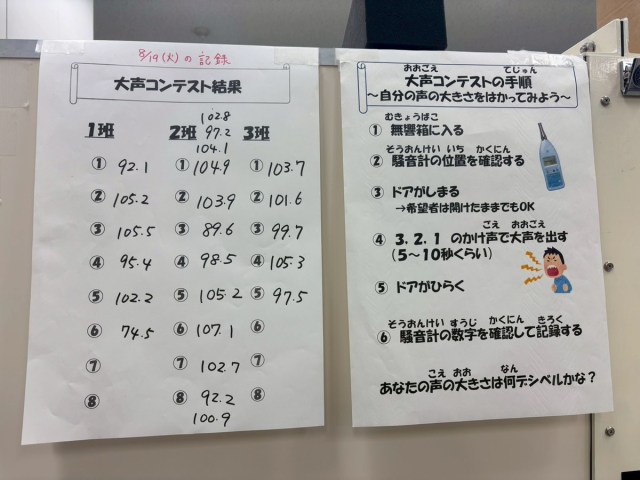 8/19(火)の記録
大声コンテスト結果
1班 2班 3班
102.8
97.2
104.1
① 92.1 ① 104.9 ① 103.7
② 105.2 ② 103.9 ② 101.6
③ 105.5 ③ 89.6 ③ 99.7
④ 95.4 ④ 98.5 ④ 105.3
⑤ 102.2 ⑤ 105.2 ⑤ 97.5
⑥ 74.5 ⑥ 107.1 ⑥
⑦ ⑦ 102.7 ⑦
⑧ ⑧ 92.2 ⑧
100.9
おおごえ てじゅん
大声コンテストの手順
～自分の声の大きさをはかってみよう～
むきょうばこ
① 無響箱に入る
そうおんけい いち かくにん
② 騒音計の位置を確認する
③ ドアがしまる
→希望者は開けたままでもOK
こえ おおごえ
④ 3.2.1 のかけ声で大声を出す
（5～10秒くらい）
⑤ ドアがひらく
そうおんけい すうじ かくにん きろく
⑥ 騒音計の数字を確認して記録する
こえ おお なん
あなたの声の大きさは何デシベルかな？